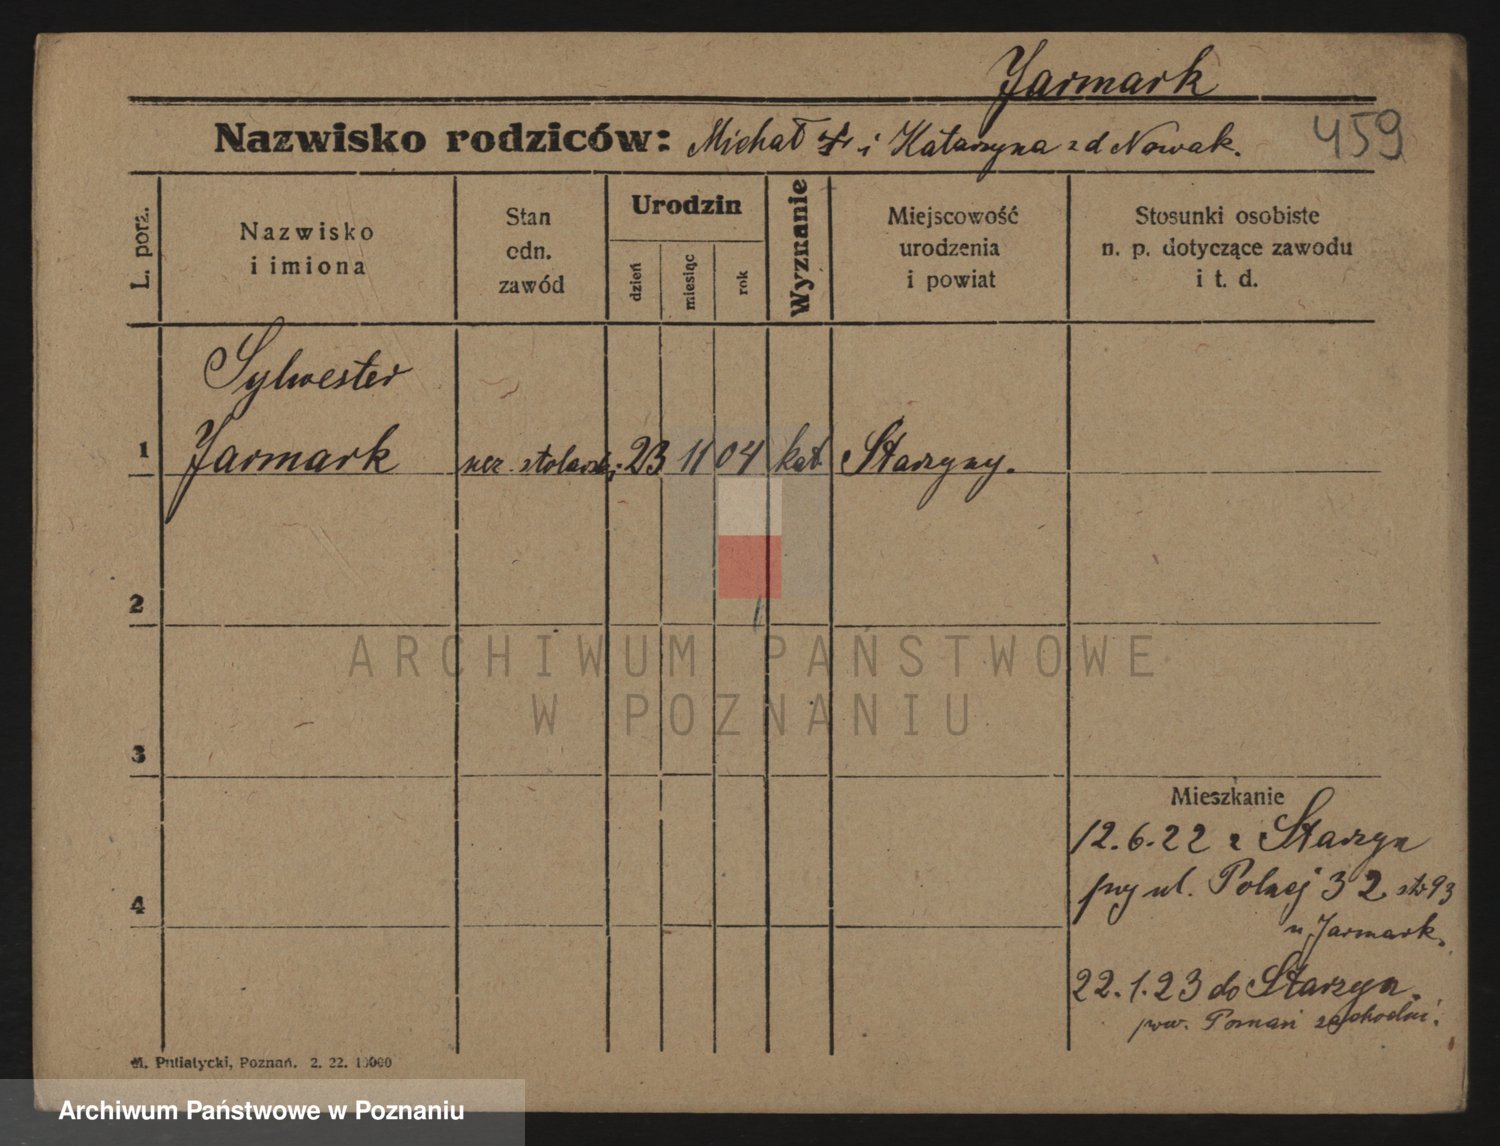 Jarmark
Nazwisko rodziców: Michał i Katarzyna z d Nowak.
459
L. porz.
Nazwisko
i imiona
Stan
odn.
zawód
Urodzin
dzień
miesiąc
rok
Wyznanie
Miejscowość
urodzenia
i powiat
Stosunki osobiste
n. p. dotyczące zawodu
i t. d.
Sylwester
1 Jarmark ucz. stolarski 23 11 04 kat. Starzyny.
2
ARCHIWUM PAŃSTWOWE
W POZNANIU
3
Mieszkanie
12.6.22 z Starzyn
przy ul. Polnej 32. str 93
u Jarmark.
4
22.1.23 do Starzyn.
pow. Poznań zachodni.
M. Putiatycki, Poznań. 2. 22. 10000
Archiwum Państwowe w Poznaniu